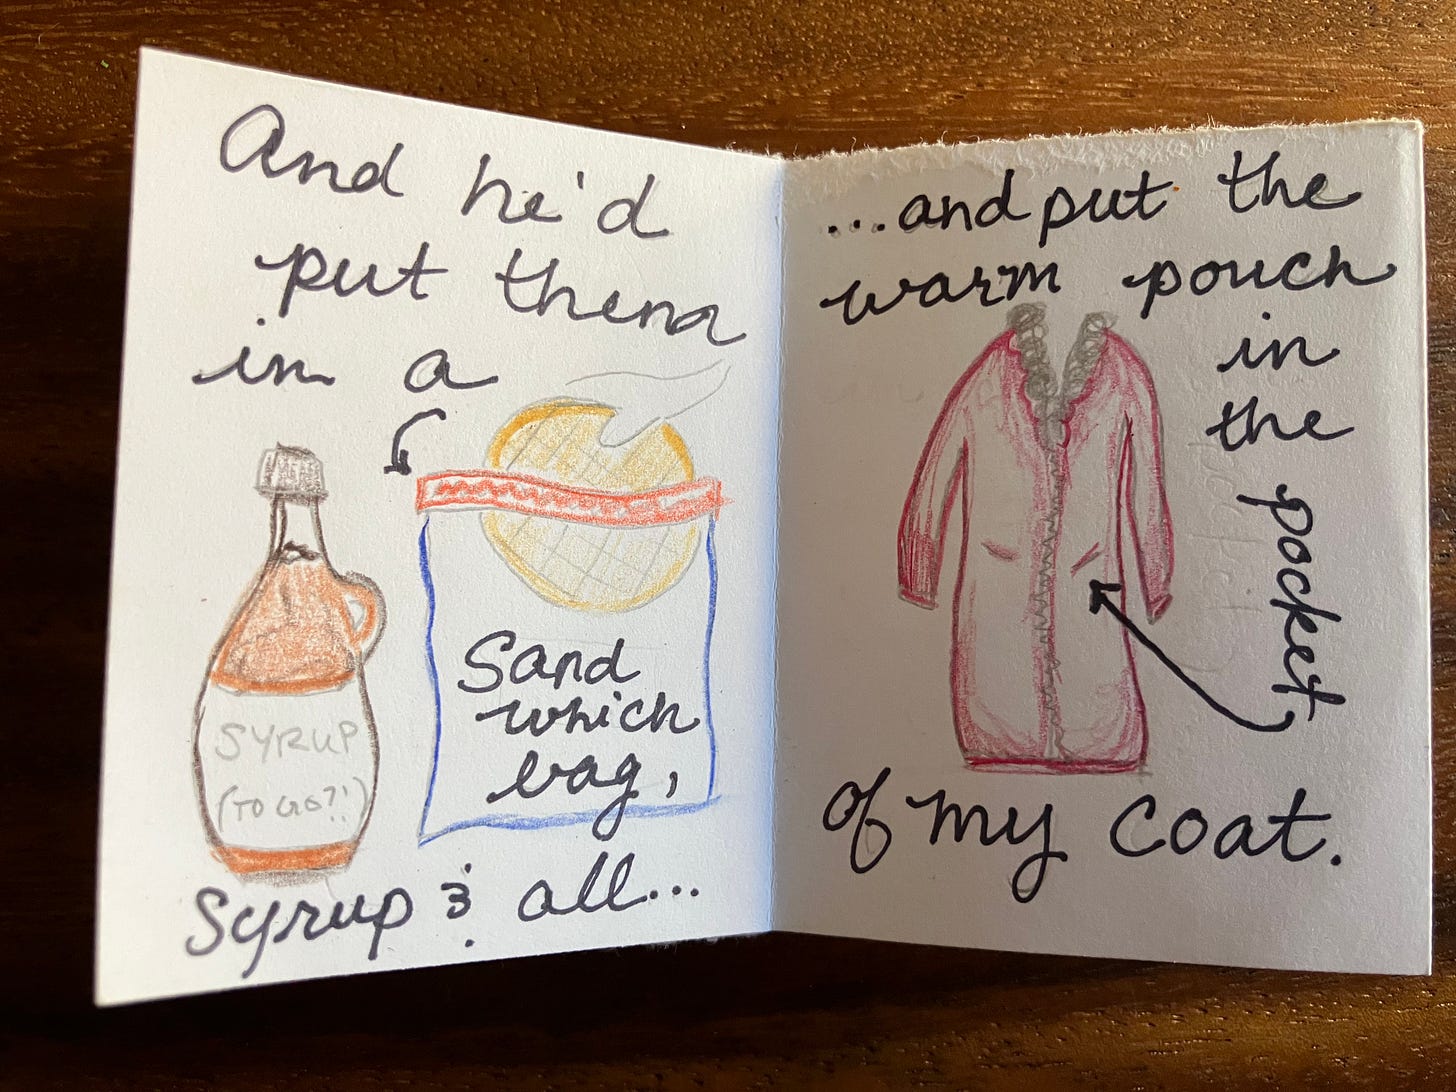 And he'd
put them
in a
Sand
which
bag,
SYRUP
(TO GO?!)
Syrup & all...
...and put the
warm pouch
in
the
pocket
of my coat.